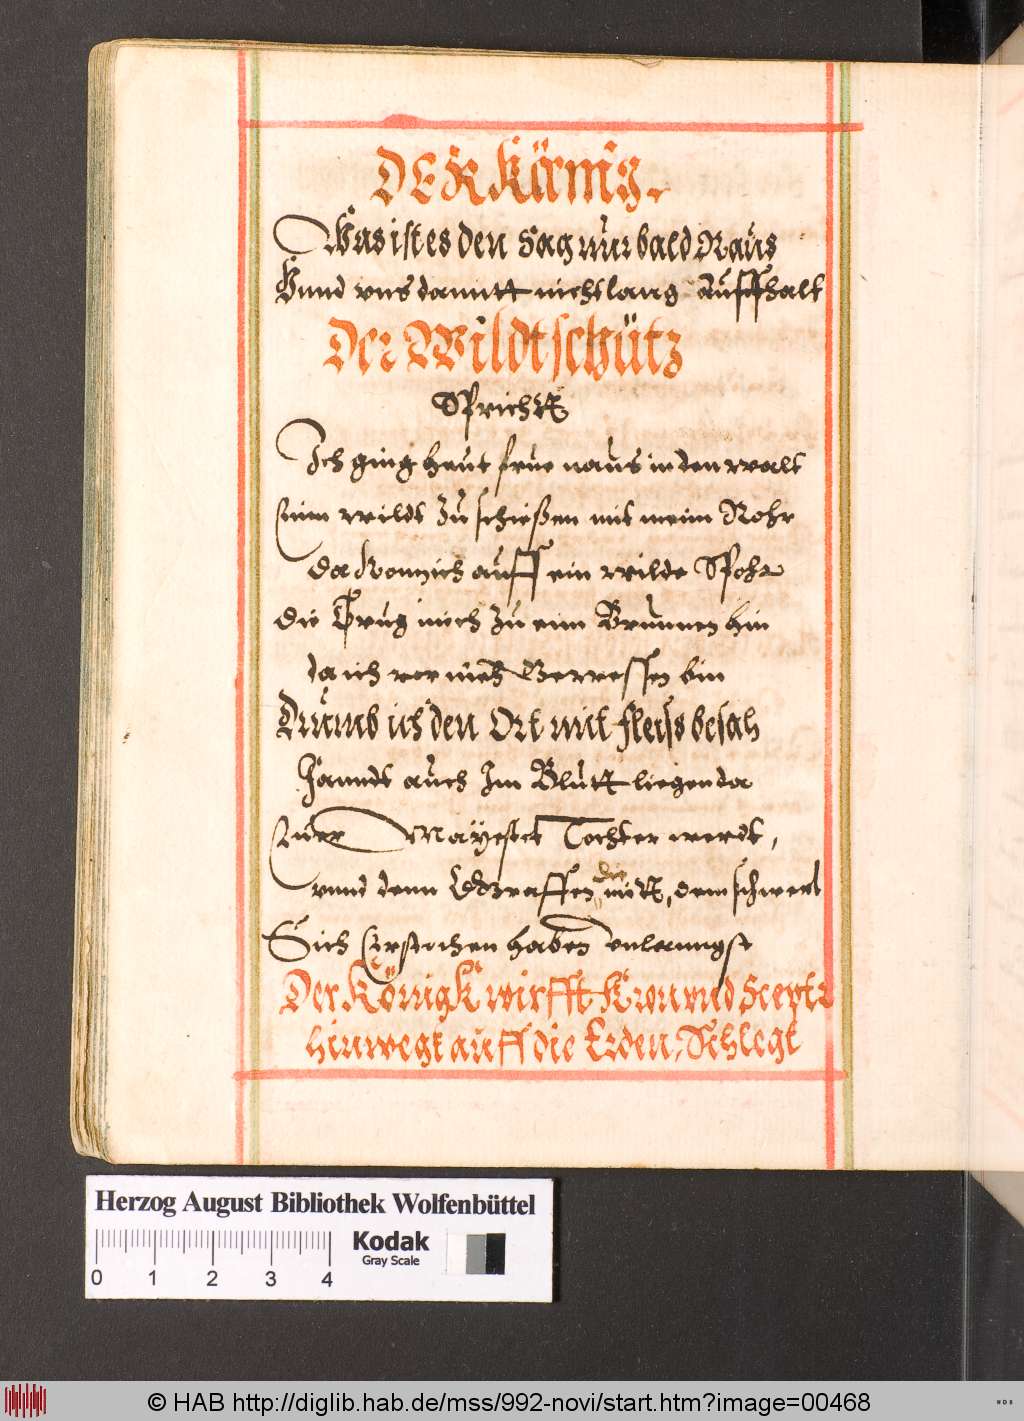 DER König.
Was ist es den Sag nur bald Raus
Vnnd vns damitt nicht lang Auffhalt
Der Wildtschütz
Sprichtt
Ich ging heut frue naus in den walt
Einn wildt Zu schießen mit meim Rohr
da kom ich auff ein wilde Spohr
die Trug mich zu eim Brunnen hin
da ich vor nicht Gewessen bin
Drumb ich den Ort mit fleiss besah
Fanndt auch Im Blutt liegen da
Euer Mayestet Tochter werdt,
vnnd denn Graffen, die mitt, dem schwert
Sich Erstochen haben
Der Königk wirfft Kron vnd Scepter
hinwegk auff die Erden, Schlegt
Herzog August Bibliothek Wolfenbüttel
Kodak
Gray Scale
0 1 2 3 4
© HAB http://diglib.hab.de/mss/992-novi/start.htm?image=00468